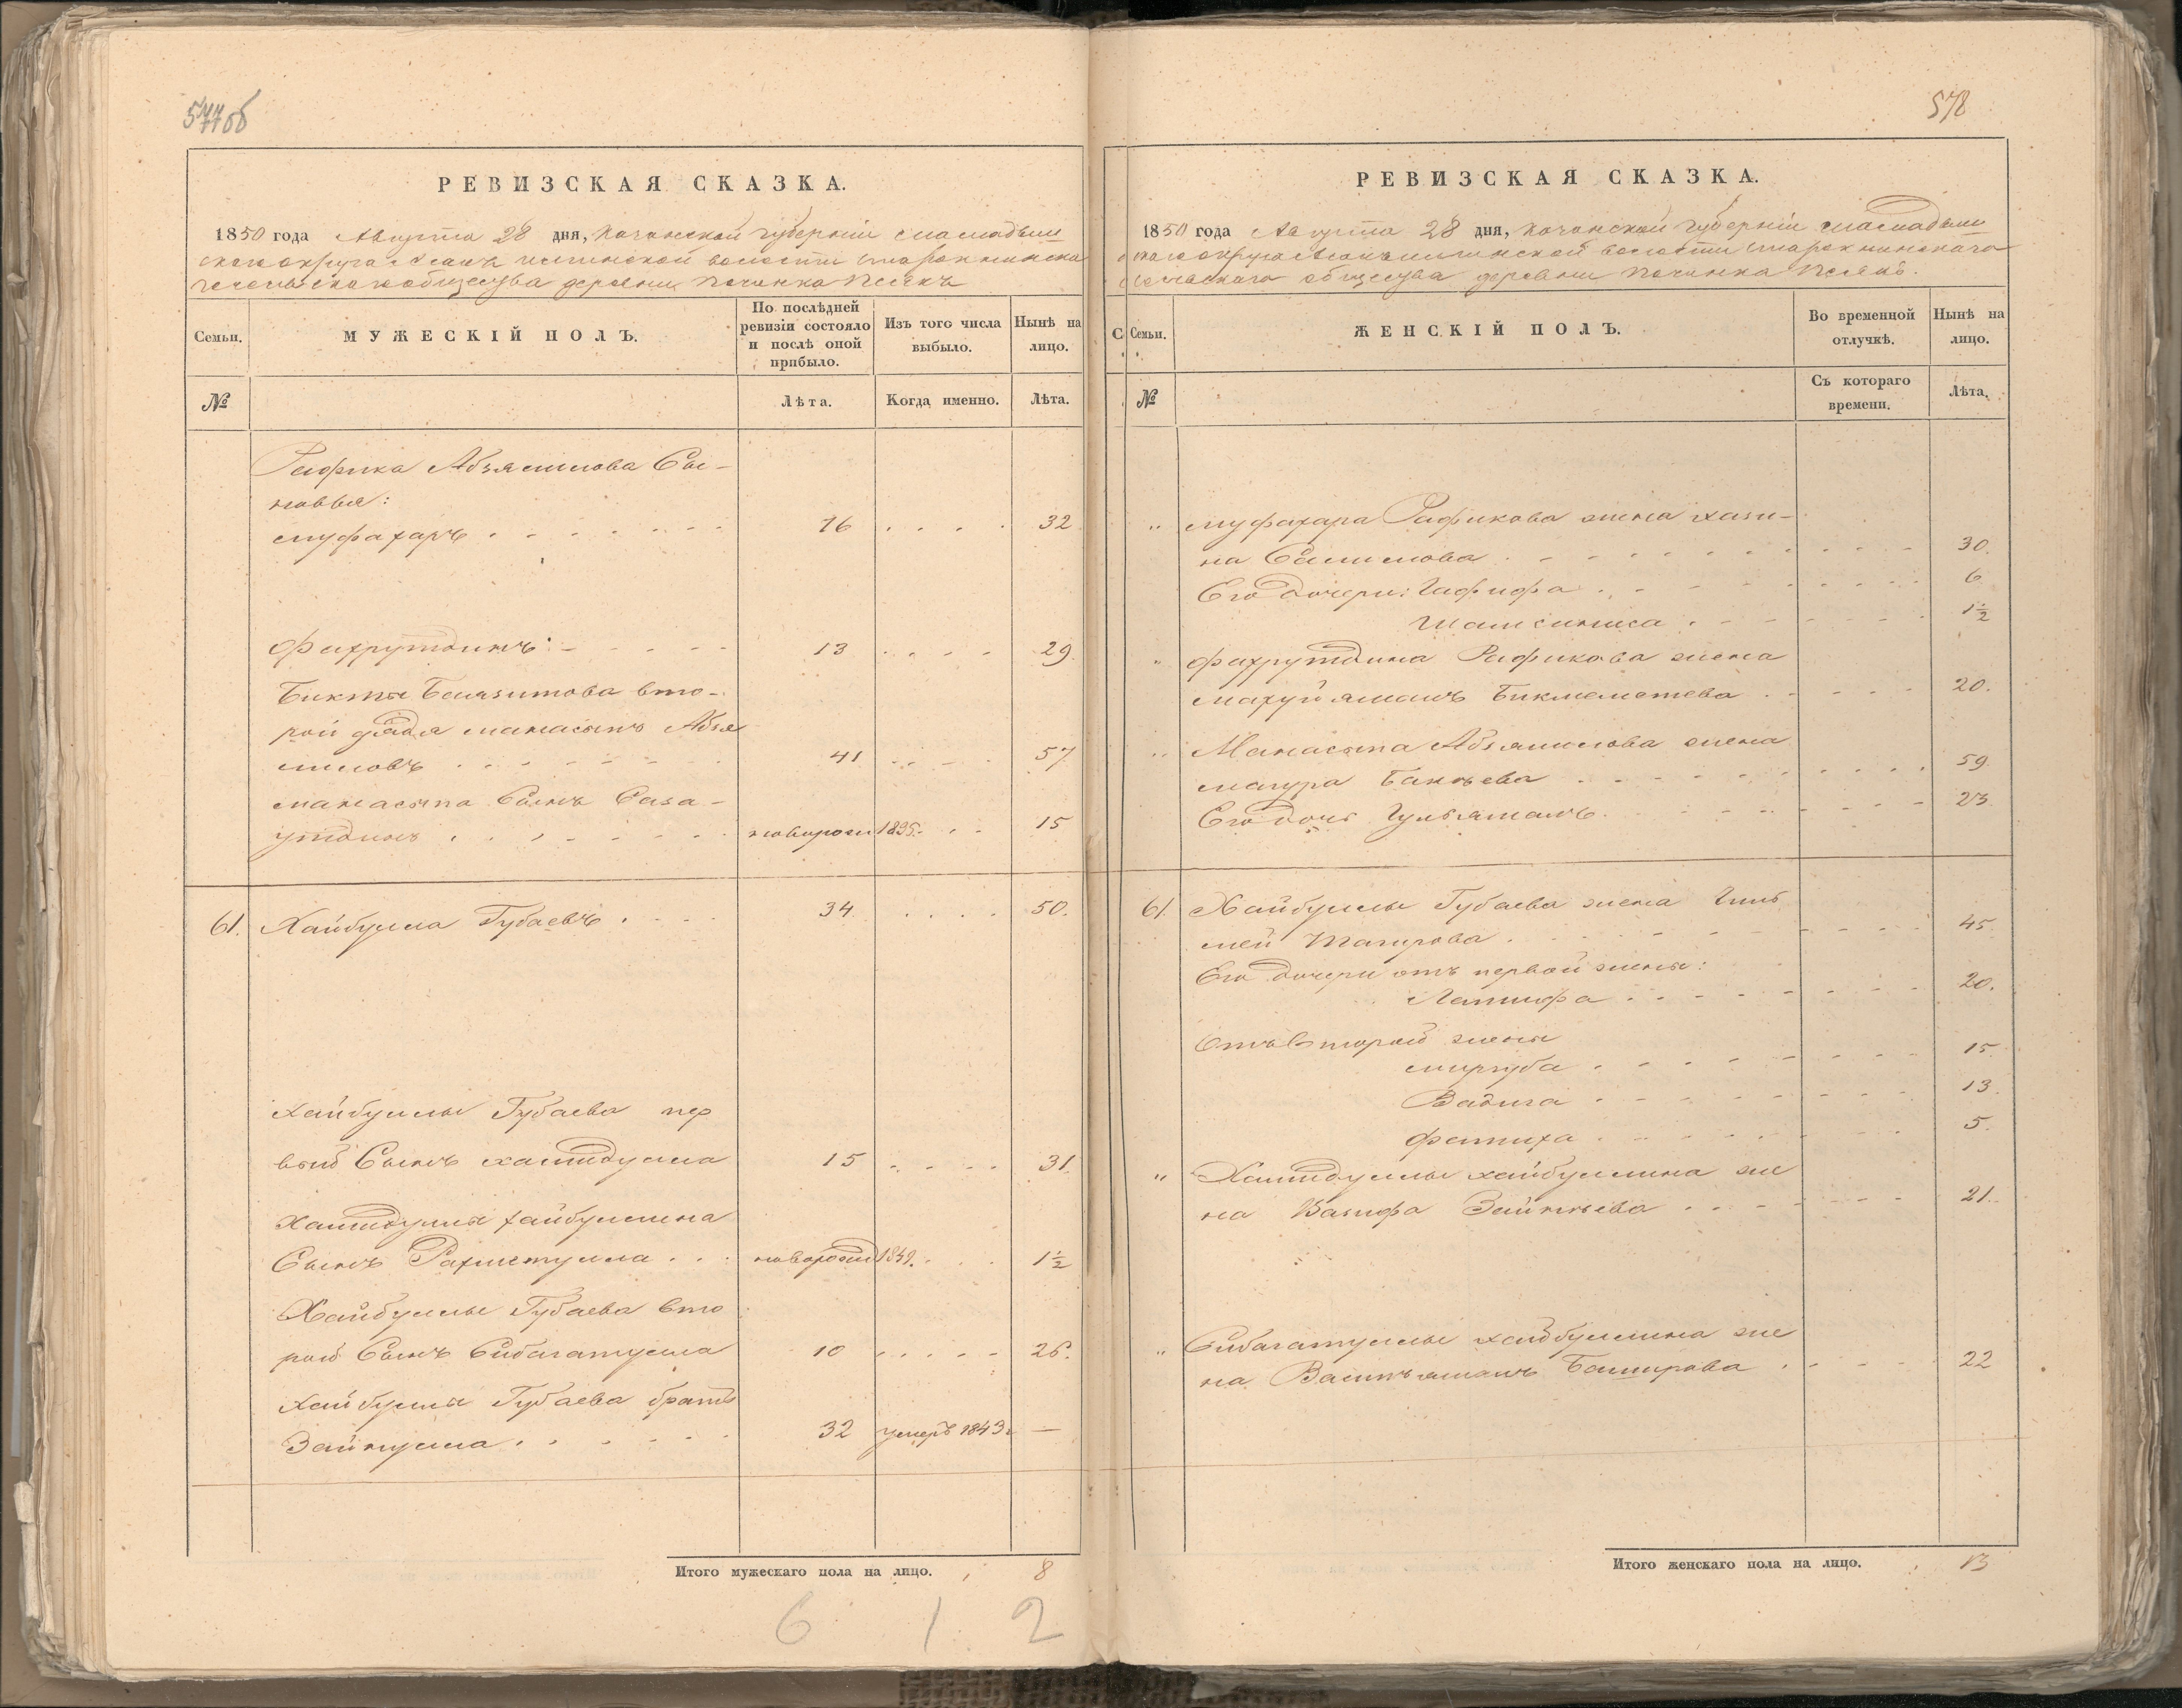 577об
РЕВИЗСКАЯ СКАЗКА.
1850 года Августа 28 дня, Казанской губернии Мамадыш
скаго округа волости
сельскаго общества деревни Починка
Семьи.
МУЖЕСКІЙ ПОЛЪ.
По послѣдней
ревизіи состояло
и послѣ оной
прибыло.
Изъ того числа
выбыло.
Нынѣ на
лицо.
№
Лѣта.
Когда именно.
Лѣта.
Рафика Абзялилова Сы-
новья:
Муфахаръ 16 32
Фахрутдинъ 13 29
Бикты второй
дядя Манасыпъ Абзя
лиловъ 41 57
Манасыпа Сынъ
утдинъ новорож 1835 15
61. Хайбулла Губаевъ 34 50.
Хайбуллы Губаева пер
вый Сынъ Хамидулла 15 31.
Хамидуллы Хайбуллина
Сынъ Рахметулла новорожд 1849. 1½
Хайбуллы Губаева вто
рой Сынъ Сибагатулла 10 26.
Хайбуллы Губаева братъ
Зайнулла 32 умеръ 1843 —
Итого мужескаго пола на лицо. 8
6 1 2
578
РЕВИЗСКАЯ СКАЗКА.
1850 года Августа 28 дня, Казанской губерніи Мамадыш
скаго округа волости
сельскаго общества деревни Починка
С. Семьи.
ЖЕНСКІЙ ПОЛЪ.
Во временной
отлучкѣ.
Нынѣ на
лицо.
№
Съ котораго
времени.
Лѣта.
" Муфахара Рафикова жена Хази-
на Салимова 30.
Его дочери: Гафифа 6
Шамсиниса 1½
" Фахрутдина Рафикова жена
Бикмеметева 20.
" Манасыпа Абзялилова жена
Магура 59.
Его дочь Гульямалъ 23
61. Хайбуллы Губаева жена
Тагирова 45
Его дочери отъ первой жены:
Латифа 20.
Отъ второй жены
15
Вадига 13.
Фатиха 5.
" Хамидуллы Хайбуллина же
на Вазифа 21.
" Сибагатуллы Хайбуллина же
на Баширова 22
Итого женскаго пола на лицо. 13